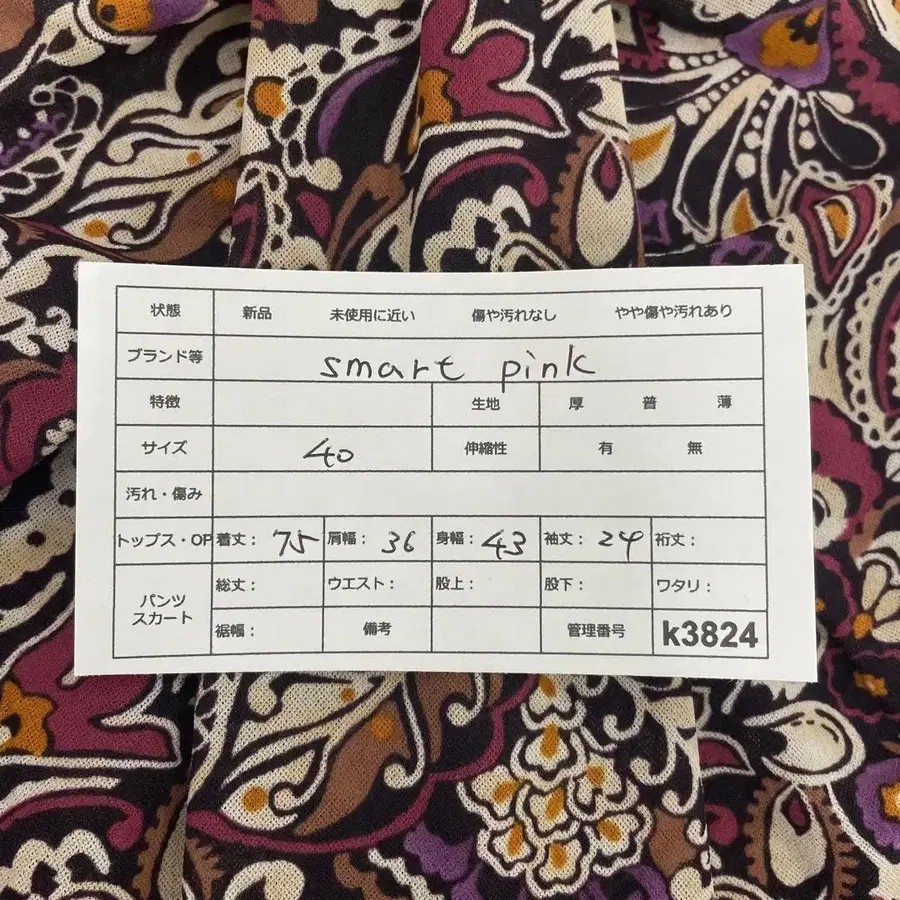 状態 新品 未使用に近い 傷や汚れなし やや傷や汚れあり
ブランド等 smart pink
特徴 生地 厚 普 薄
サイズ 40 伸縮性 有 無
汚れ・傷み
トップス・OP 着丈: 75 肩幅: 36 身幅: 43 袖丈: 24 裄丈:
パンツ スカート 総丈: ウエスト: 股上: 股下: ワタリ:
裾幅: 備考 管理番号 k3824